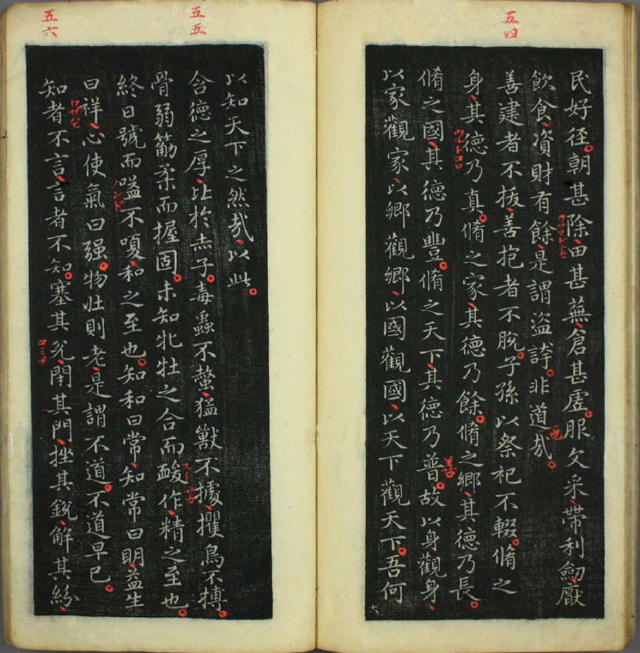 五四
民好径朝甚除田甚蕪倉甚虛服文采帶利劒厭
飲食資財有餘是謂盜誇非道哉
善建者不拔善抱者不脫子孫以祭祀不輟脩之
身其德乃真脩之家其德乃餘脩之鄉其德乃長
脩之國其德乃豐脩之天下其德乃普故以身觀身
以家觀家以鄉觀鄉以國觀國以天下觀天下吾何
五五
以知天下之然哉以此
含德之厚比於赤子毒蟲不螫猛獸不據攫鳥不搏
骨弱筋柔而握固未知牝牡之合而酸作精之至也
終日號而嗌不嗄和之至也知和曰常知常曰明益生
曰祥心使氣曰强物壯則老是謂不道不道早已
五六
知者不言言者不知塞其兊閇其門挫其銳解其紛